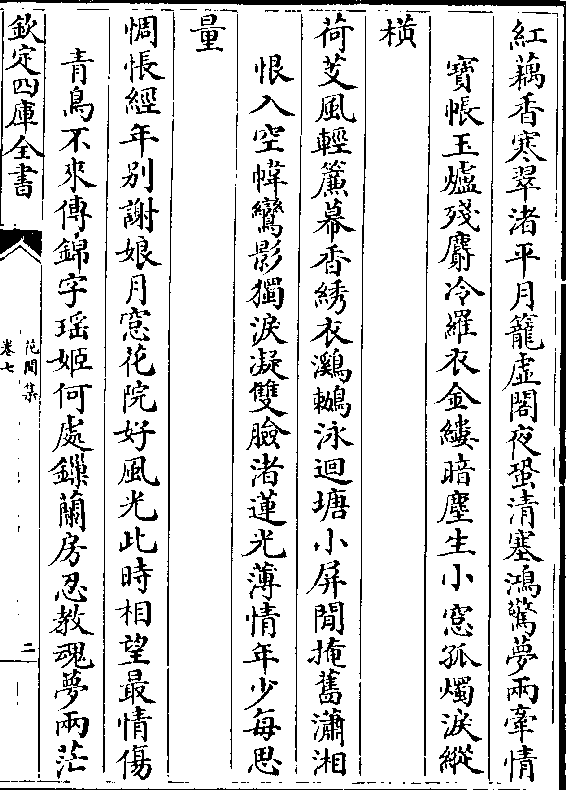 紅藕香寒翠渚平月籠虛閣夜蛩清塞鴻驚夢兩牽情
寶帳玉爐殘麝冷羅衣金縷暗塵生小窓孤燭淚縱
橫
荷芰風輕簾幕香綉衣鸂鶒泳迴塘小屏閒掩舊瀟湘
恨入空幃鸞影獨淚凝雙臉渚蓮光薄情年少每思
量
惆悵經年别謝娘月窓花院好風光此時相望最情傷
青鳥不來傳錦字瑶姬何處鏁蘭房忍教魂夢兩茫
欽定四庫全書
花間集
卷七
二